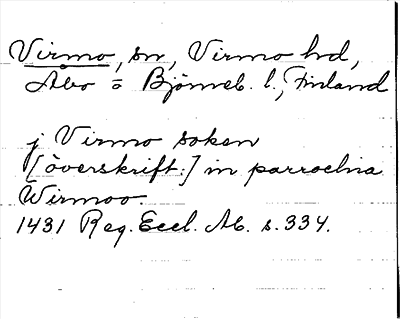 Virmo, sn, Virmo hd,
Åbo = Björneb. l., Finland
j Virmo soken
[överskrift:] in parroelna
Wirmoo.
1431 Reg. Eccl. Ab. s. 334.